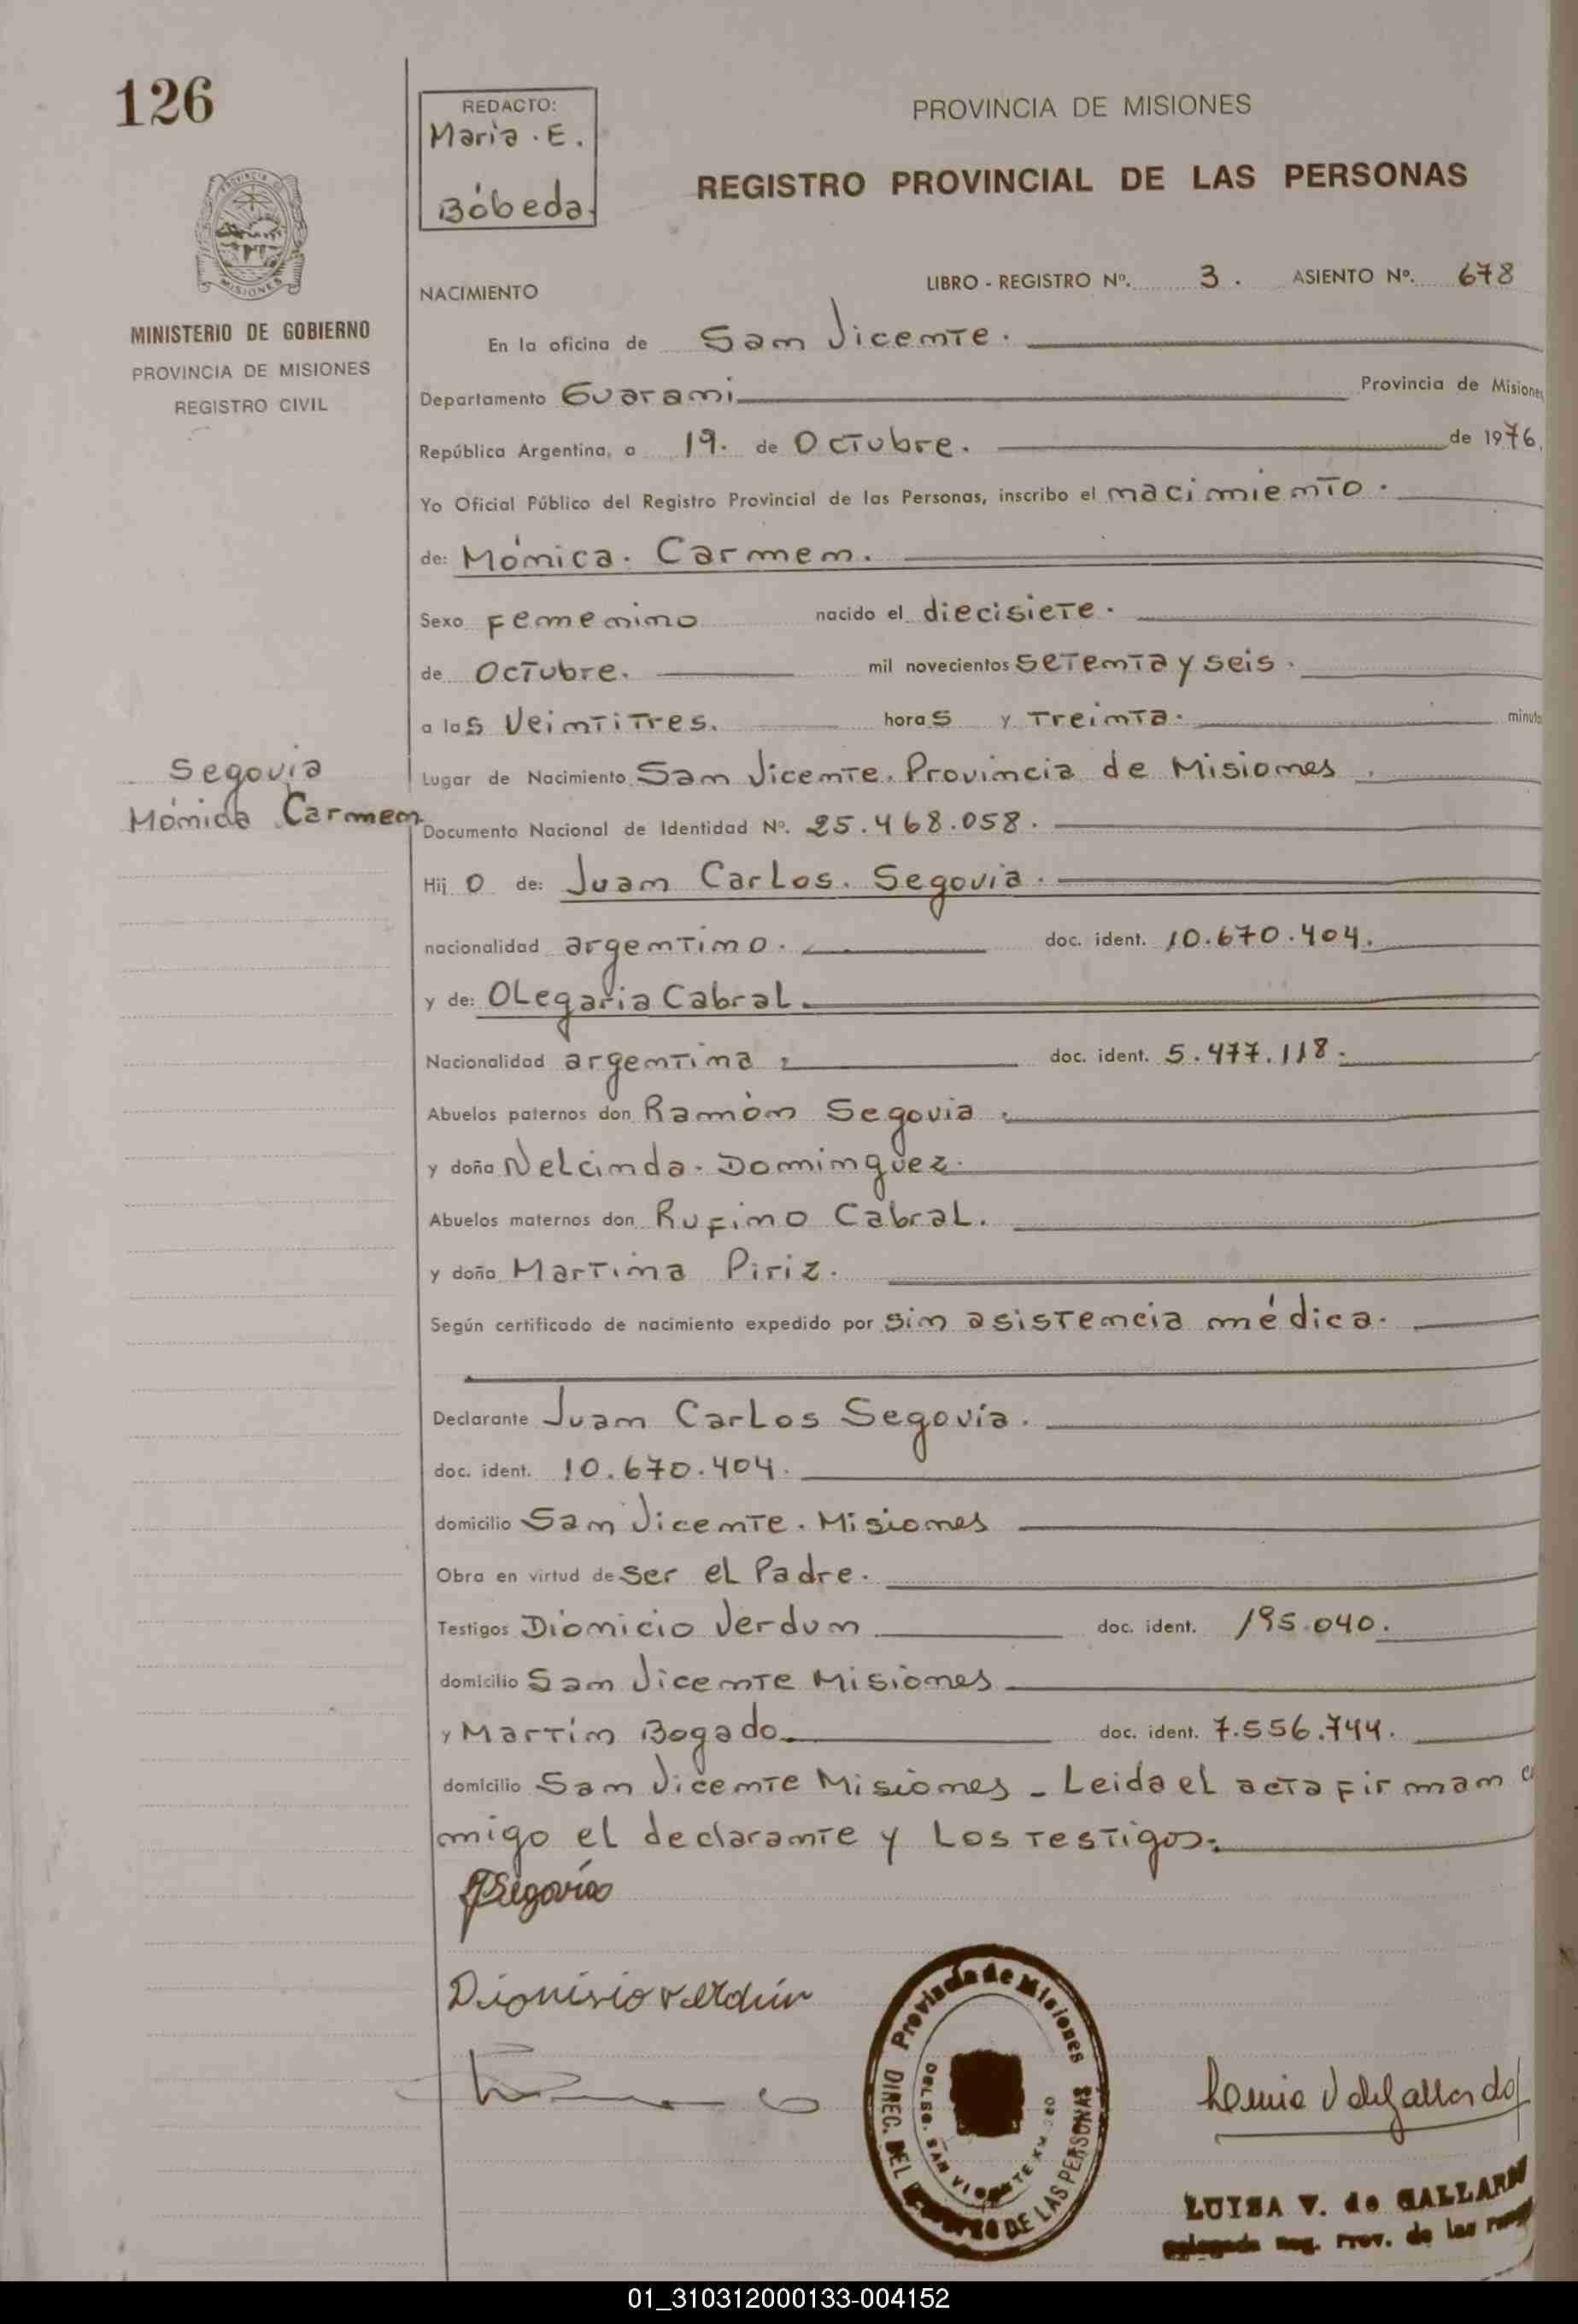 126
REDACTO:
Maria . E.
Bóbeda.
PROVINCIA DE MISIONES
REGISTRO PROVINCIAL DE LAS PERSONAS
PROVINCIA DE
MISIONES
MINISTERIO DE GOBIERNO
PROVINCIA DE MISIONES
REGISTRO CIVIL
NACIMIENTO LIBRO - REGISTRO Nº. 3 . ASIENTO Nº. 678
En la oficina de San Vicente.
Departamento Guarani Provincia de Misiones
República Argentina, a 19. de Octubre. de 1976.
Yo Oficial Público del Registro Provincial de las Personas, inscribo el nacimiento.
de: Mónica. Carmen.
Sexo Femenino nacido el diecisiete.
de Octubre. mil novecientos setenta y seis.
a las Veintitres. horas y Treinta. minuto
Segovia
Mónica Carmen
Lugar de Nacimiento San Vicente. Provincia de Misiones.
Documento Nacional de Identidad Nº. 25.468.058.
Hij o de: Juan Carlos. Segovia.
nacionalidad argentino. doc. ident. 10.670.404.
y de: Olegaria Cabral.
Nacionalidad argentina. doc. ident. 5.477.118.
Abuelos paternos don Ramón Segovia.
y doña Nelcinda. Dominguez.
Abuelos maternos don Rufino Cabral.
y doña Martina Piriz.
Según certificado de nacimiento expedido por sin asistencia médica.
Declarante Juan Carlos Segovia.
doc. ident. 10.670.404.
domicilio San Vicente. Misiones
Obra en virtud de ser el Padre.
Testigos Dionicio Verdun doc. ident. 195.040.
domicilio San Vicente Misiones
y Martín Bogado. doc. ident. 7.556.744.
domicilio San Vicente Misiones - Leida el acta firman
migo el declarante y los testigos.
Segovia
Dionisio Verdún
Provincia de Misiones
DIREC. DEL REGISTRO DE LAS PERSONAS
DELEG. SAN VICENTE
LUISA V. de GALLARD
Prov. de las
01_310312000133-004152